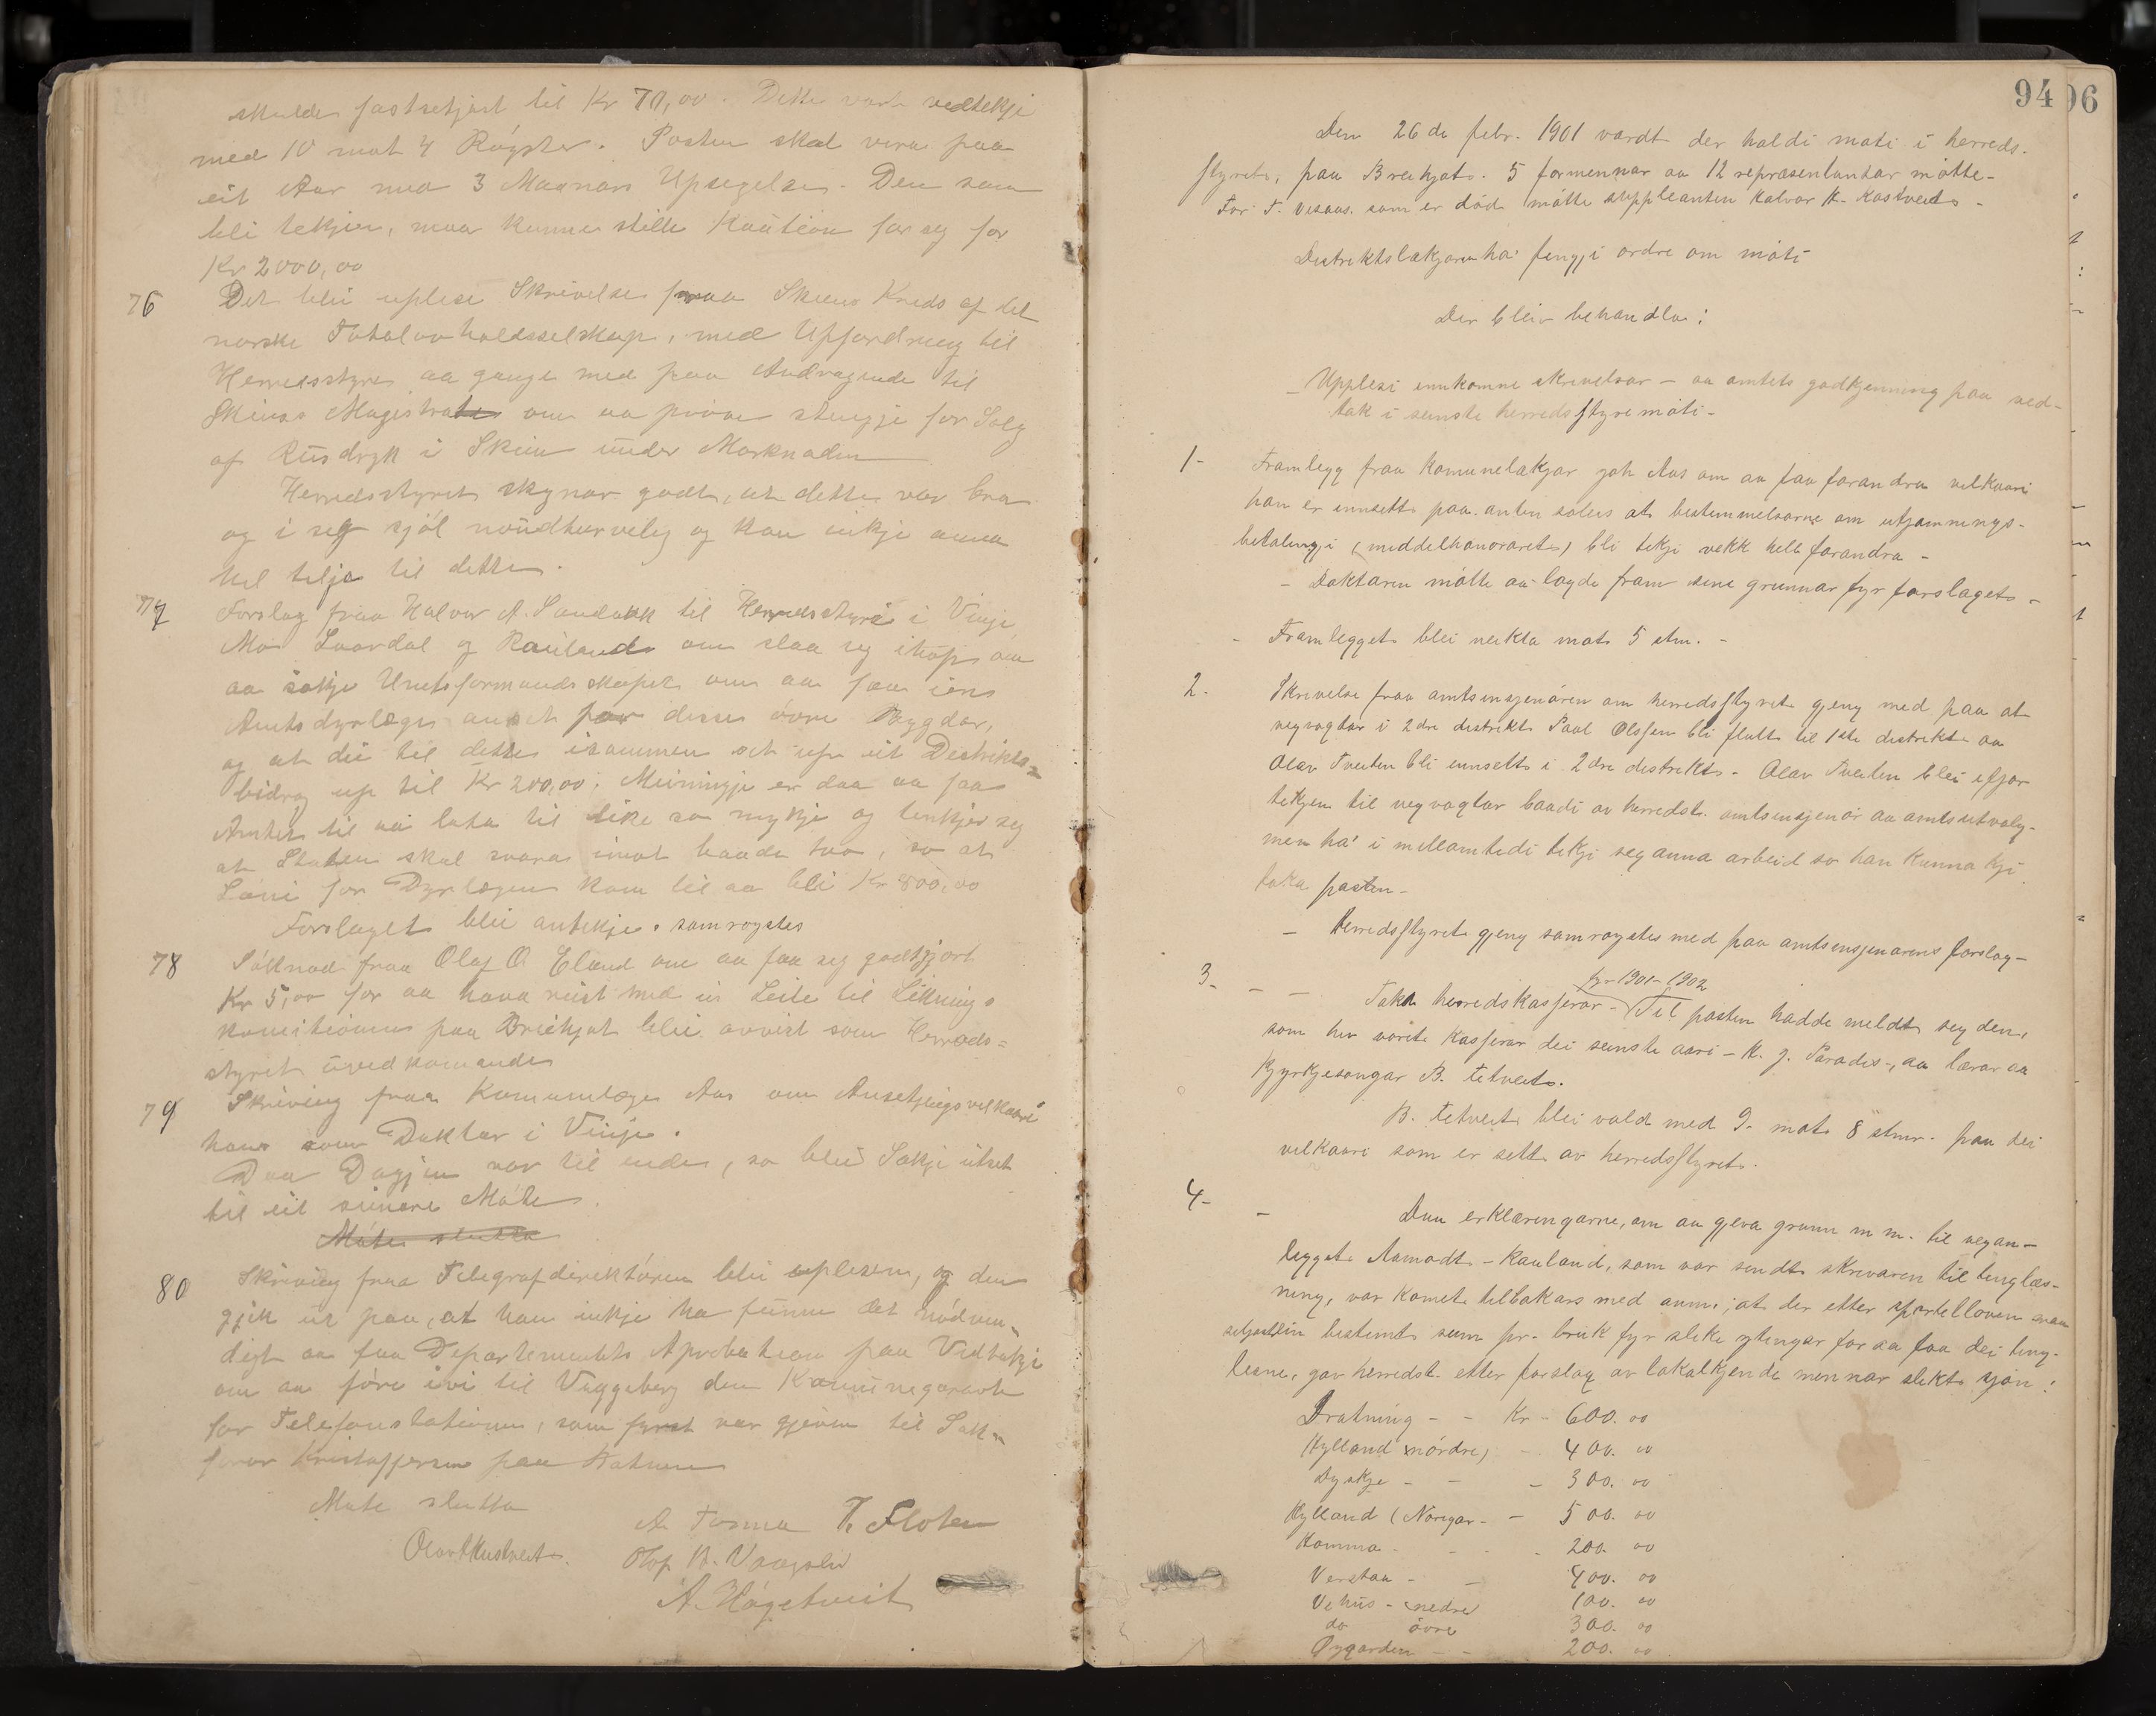 skulde fastsetjast til Kr 70,00. Dette vart vedtekje
med 10 mot 4 Røyster. Posten skal vera paa
eit Aar med 3 Maanars Upsegelse. Den som
bli tekjen, maa kunne stille Kaution for seg for
Kr 2000,00
76 Det blei uplese Skrivelse fraa Skiens Kreds af det
norske Totalavholdsselskap, med Upfordring til
Herredsstyre aa gange med paa Andragende til
Skiens Magistrat om aa prøve stengje for Salg
af Rusdryk i Skien under Marknaden
Herredsstyret skynar godt, at dette var bra
og i seg sjøl nøudturveleg og kan inkje anna
hel telja til dette.
77 Forslag fraa Halvor A. Sandokk til Herredsstyre i Vinje,
Mo Laardal og Rauland om slaa seg ihop om
aa søkje Amtsformandskapet om aa faa ein
Amtsdyrlæge ansett for desse øvre Bygdar,
og at dei til dette isammen set up eit Destrikts=
bidrag up til Kr 200,00. Meiningje er daa aa faa
Amtet til aa lata til like so mykje og tenkjer seg
at Staten skal svara imot baade two, so at
Løni for Dyrlægen kom til aa bli Kr 800,00
Forslaget blei antekje. samrøystes
78 Søknad fraa Olaf O. Eland om aa faa seg godtgjort
Kr 5,00 for aa hava reist med ei Leite til Liknings
komitionen paa Breikjat blei avvist som Herreds=
styret uvedkomande
79 Skriving fraa Komunelæge Aas om Ansetjingsvilkaari
hans som Doktar i Vinje.
Daa Dagjen var til ende, so blei Sakje utset
til eit seinere Møte.
Møte slutta
80 Skriving fraa Telegrafdirektøren blei uplesen, og den
gjik ut paa, at han inkje ha funne det nødven=
digt aa faa Departementets Aprobation paa Vedtakje
om aa føre ivi til Vaggeberg den Kommunegaranti
for Telefonstationen, som fyrst var gjeven til Sak=
førar Kristoffersen paa
Møte slutta
A. Tonna T. Floten
Olav Kustveit. Olap N. Vaagslid
A. Høgetveit
94
96
Den 26 de febr. 1901 vardt der haldi møti i herreds-
styret, paa Breikjat. 5 formennar aa 12 repræsentantar møtte-
For T. Vesaas. som er død møtte suppleanten Halvor K. Kostveit -
Distriktslækjaren ha' fengji ordre om møti
Der bleiv behandla:
- Upplesi innkomne skrivelsar - aa amtets godkjenning paa ved-
tak i seinste herredsstyremøti -
1- Framlegg fraa komunelækjar joh Aas om aa faa forandra vilkaari
han er innsett paa. anten soleis at bestemmelsarne om utjamnings-
betalingji (middelhonoraret) bli tekji vekk hell forandra -
- Doktaren møtte aa lagde fram sine grunnar fyr forslaget -
- Framlegget blei neikta mot 5 stm. -
2. Skrivelse fraa amtsinsjenøren om herredsstyret gjeng med paa at
vegvagtar i 2dre distrikt Paal Olsson bli flutt til 1ste distrikt aa
Olav Tveiten bli innsett i 2dre distrikt - Olav Tveiten blei ifjor
tekjen til vegvagtar baadi av herredst. amtsinsjenør aa amtsutvalg-
men ha' i mellomtedi tekji seg anna arbeid so han kunna kji
taka posten -
- Herredsstyret gjeng samrøystes med paa amtsinsjenørens forslag -
3- - - Taka herredskasserar - fyr 1901-1902 Til posten hadde meldt seg den,
som hev vorit kasserar dei seinste aari - K. J. Paradis -, aa lærar aa
kjyrkjesongar B. Tetveit.
B. Tetveit blei vald med 9. mot 8 stmr. paa dei
vilkaari som er sett av herredsstyret.
4- - Daa erklæringarne, om aa gjeva grunn m m. til vegan-
legget Aamodt - Rauland, som var sendt skrivaren til tinglæs-
ning, var komet tilbakars med anm. ; at der etter sportelloven maa
setjast ein bestemt sum pr. bruk fyr slike ytingar for aa faa dei ting-
lesne, gav herredst. etter forslag av lokalkjende mennar slikt sjøn :
Bratning - - Kr - 600. 00
Hylland (nørdre) - 400. 00
Dyskje - - - 300. 00
Hylland (Norigar - - 500. 00
Komma - - - 200. 00
Verstaa - - 400. 00
Vehus - nedre 100. 00
do øvre 300. 00
Øygarden - - 200. 00